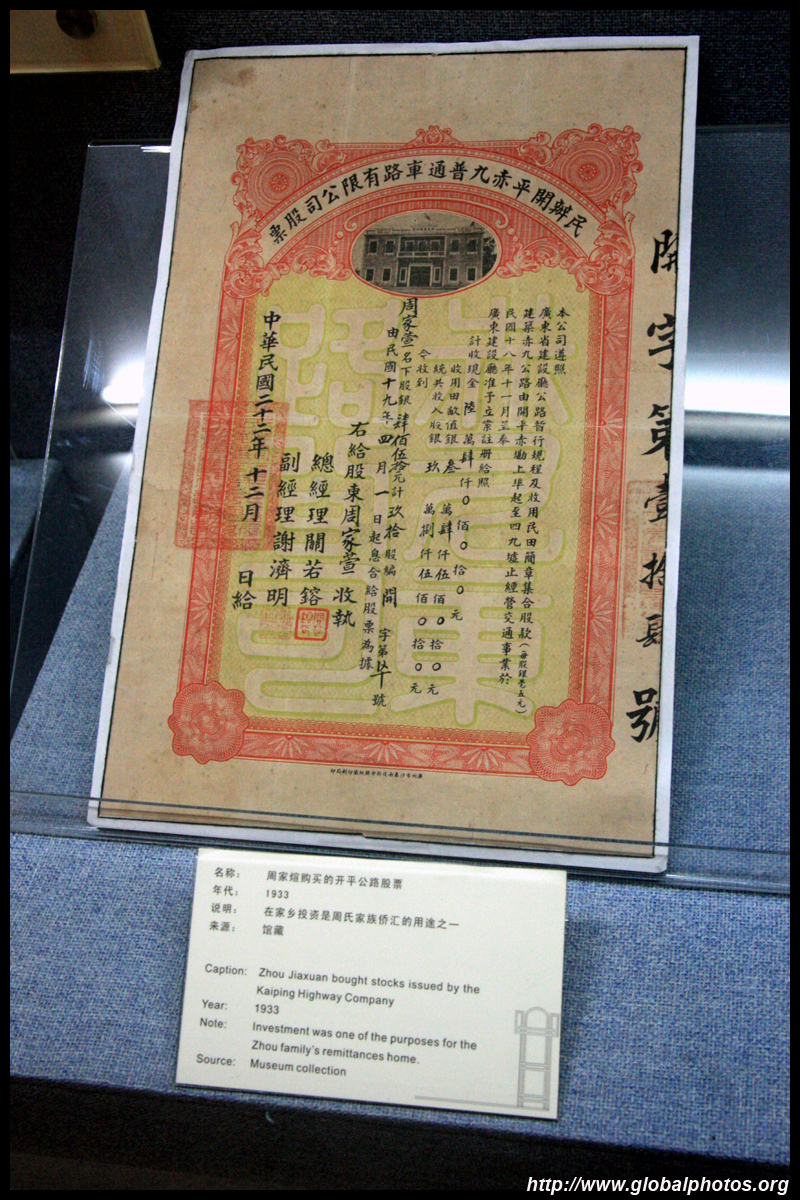 民辦開平赤九普通車路有限公司股票
開字第壹拾肆號
本公司遵照
廣東省建設廳公路暫行規程及收用民田簡章集合股款(每股銀毫五元)
建築赤九公路由開平赤墈上埠起至四九墟止經營交通事業於
民國十八年十一月呈奉
廣東建設廳准予立案註册給照
計收現金陸萬肆仟0佰0拾0元
收用田畝值銀叁萬肆仟伍佰0拾0元
統共收入股銀玖萬捌仟伍佰0拾0元
今收到
周家萱名下股銀肆佰伍拾元計玖拾股編開字第號
由民國十九年四月一日起息合給股票為據
右給股東周家萱收執
總經理關若鎔
副經理謝濟明
中華民國二十二年十二月日給
名称： 周家煊购买的开平公路股票
年代： 1933
说明： 在家乡投资是周氏家族侨汇的用途之一
来源： 馆藏
Caption: Zhou Jiaxuan bought stocks issued by the
Kaiping Highway Company
Year: 1933
Note: Investment was one of the purposes for the
Zhou family's remittances home.
Source: Museum collection
http://www.globalphotos.org